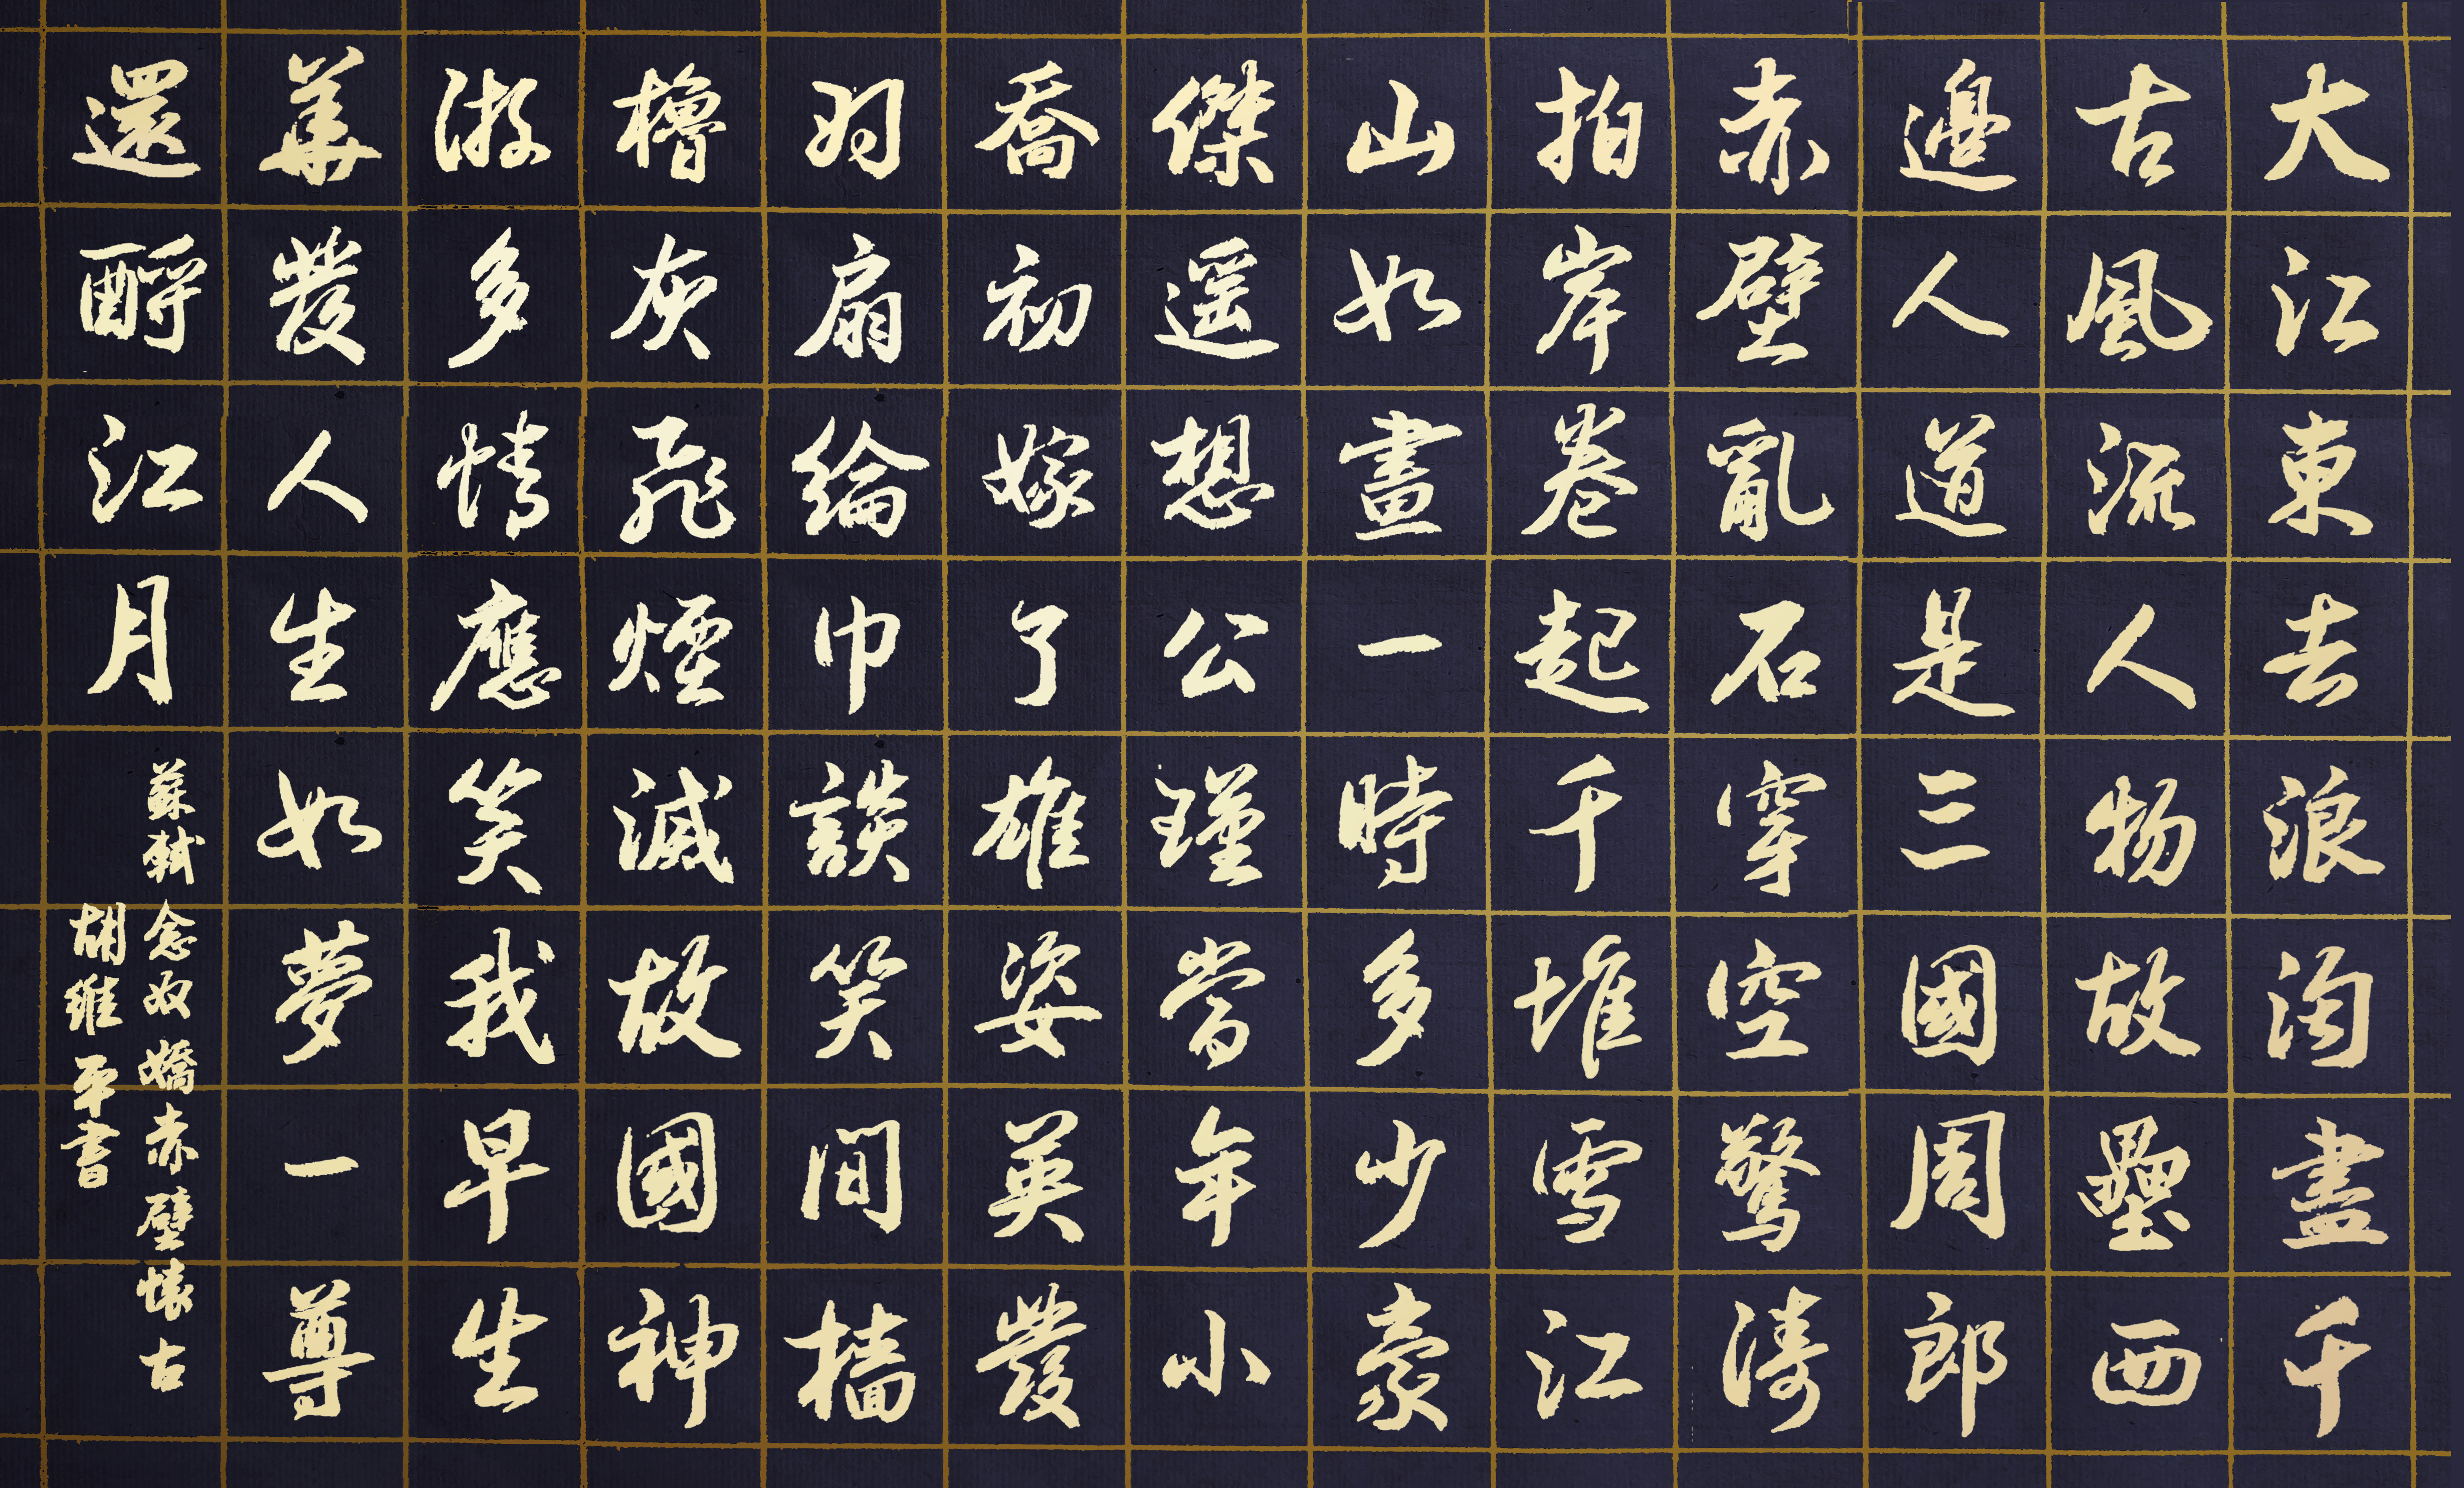 大江東去浪淘盡千
古風流人物故壘西
邊人道是三國周郎
赤壁亂石穿空驚濤
拍岸卷起千堆雪江
山如畫一時多少豪
傑遥想公瑾當年小
喬初嫁了雄姿英發
羽扇綸巾談笑間檣
櫓灰飛煙滅故國神
遊多情應笑我早生
華發人生如夢一尊
還酹江月
蘇軾念奴嬌赤壁懷古
胡維平書